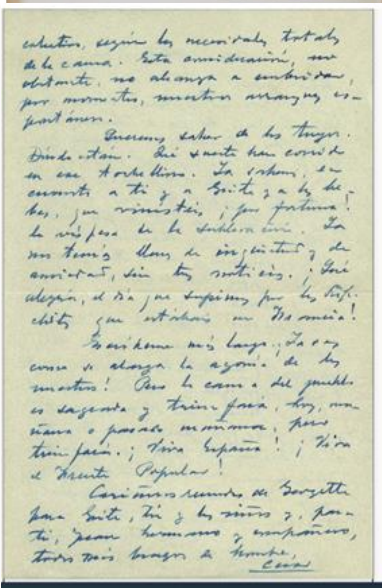 colectivo, según las necesidades totales
de la causa. Esta consideración, no
obstante, no alcanza a embridar,
por momentos, nuestros arranques es-
pontáneos.
Queremos saber de los tuyos.
Dónde están. Qué suerte han corrido
en ese torbellino. Ya sabemos, en
cuanto a ti y a Grite, y a los be-
bés, que vinisteis ¡por fortuna!
la víspera de la sublevación. Ya
nos tenías llenos de inquietud y de
ansiedad, sin tus noticias. ¡Qué
alegría, el día que supimos por los
que estabais en Francia!
Escríbeme más largo. ¡Ya ves
como se alarga la agonía de los
nuestros! Pero la causa del pueblo
es sagrada y triunfará, hoy, ma-
ñana o pasado mañana, pero
triunfará. ¡Viva España! ¡Viva
el Frente Popular!
Cariñosos recuerdos de Georgette
para Grite, ti y los niños y, para
ti, Juan hermano y compañero,
todos mis brazos de hombre,
César